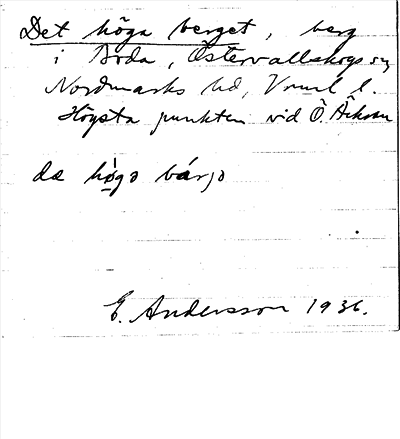 Det höga berget, berg
i Boda, Östervallskogs sn
Nordmarks hd, Vrml l.
Högsta punkten vid Ö.
dæ høgə bárjə
E. Andersson 1936.